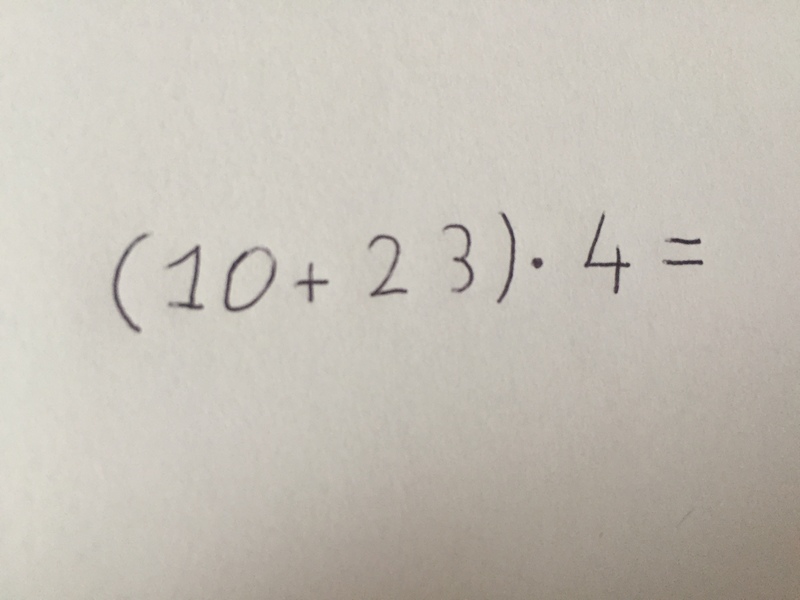 (10+23)·4=